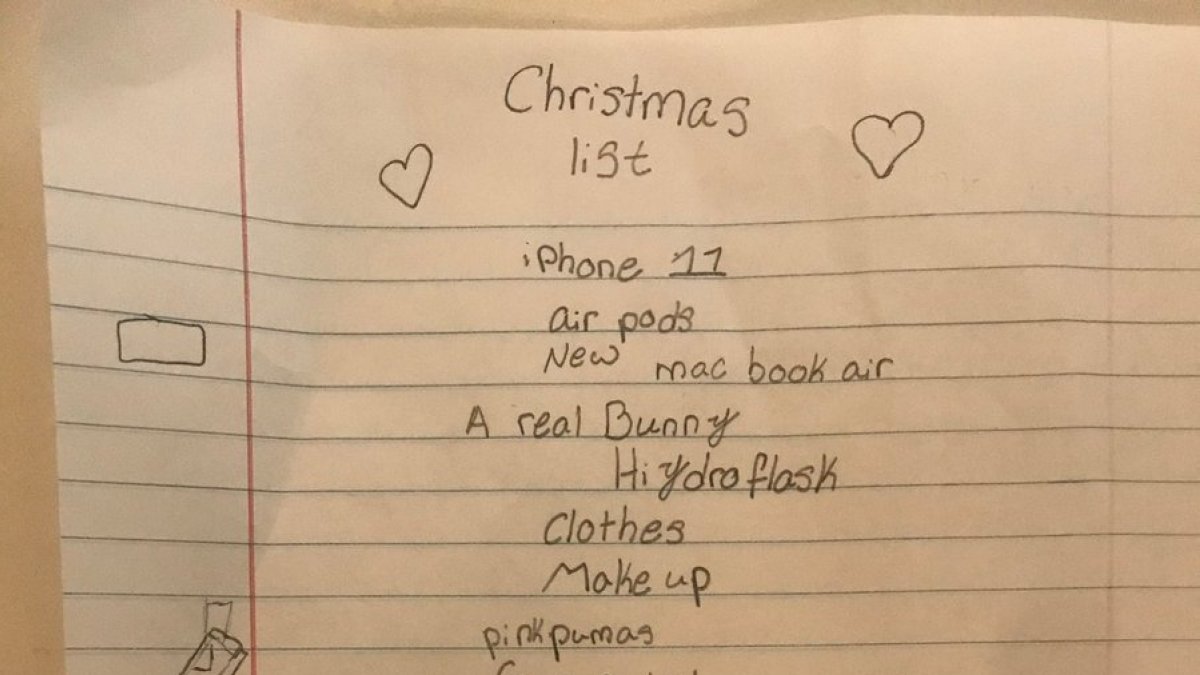 Christmas
list
iPhone 11
air pods
New mac book air
A real Bunny
Hiydroflask
Clothes
Make up
pink pumas